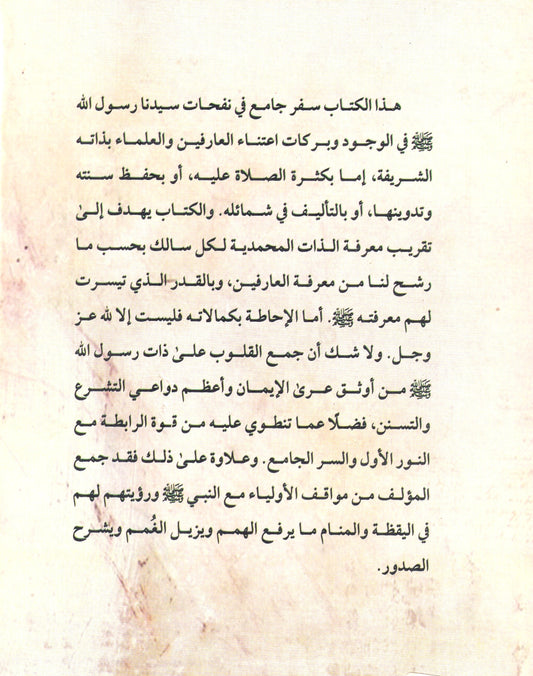 هذا الكتاب سفر جامع في نفحات سيدنا رسول الله
ﷺ في الوجود وبركات اعتناء العارفين والعلماء بذاته
الشريفة، إما بكثرة الصلاة عليه، أو بحفظ سنته
وتدوينها، أو بالتأليف في شمائله. والكتاب يهدف إلىٰ
تقريب معرفة الذات المحمدية لكل سالك بحسب ما
رشح لنا من معرفة العارفين، وبالقدر الذي تيسرت
لهم معرفته ﷺ. أما الإحاطة بكمالاته فليست إلا لله عز
وجل. ولا شك أن جمع القلوب علىٰ ذات رسول الله
ﷺ من أوثق عرىٰ الإيمان وأعظم دواعي التشرع
والتسنن، فضلًا عما تنطوي عليه من قوة الرابطة مع
النور الأول والسر الجامع. وعلاوة علىٰ ذلك فقد جمع
المؤلف من مواقف الأولياء مع النبي ﷺ ورؤيتهم لهم
في اليقظة والمنام ما يرفع الهمم ويزيل الغُمم ويشرح
الصدور.